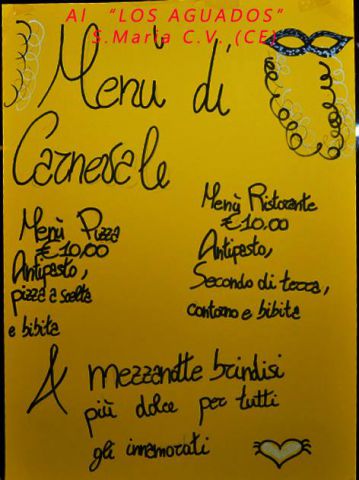 Al "LOS AGUADOS"
S.Maria C.V. (CE)
Menù di
Carnevale
Menù Pizza
€10,00
Antipasto,
pizza a scelta
e bibita
Menù Ristorante
€10.00
Antipasto,
Secondo di terra,
contorno e bibita
A mezzanotte brindisi
più dolce per tutti
gli innamorati